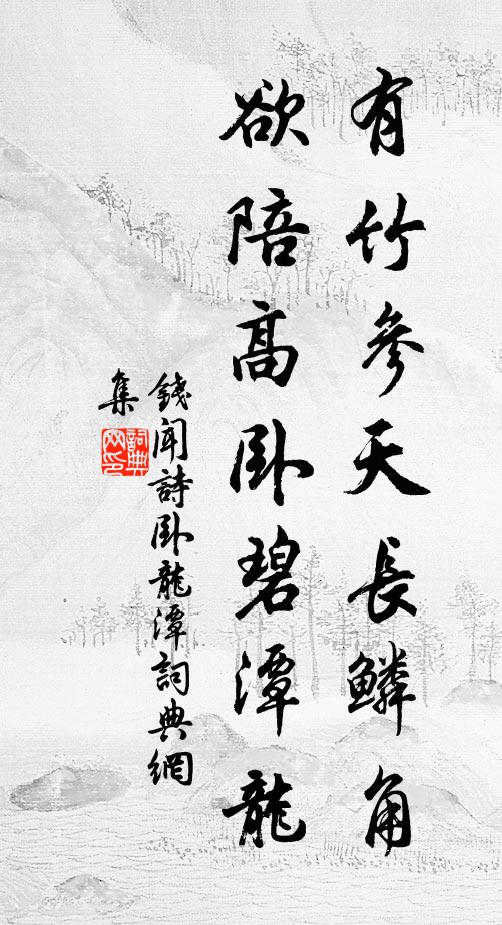 有竹參天長鱗角
欲陪高臥碧潭龍
錢聞詩臥龍潭詞典網
集
詞典網印